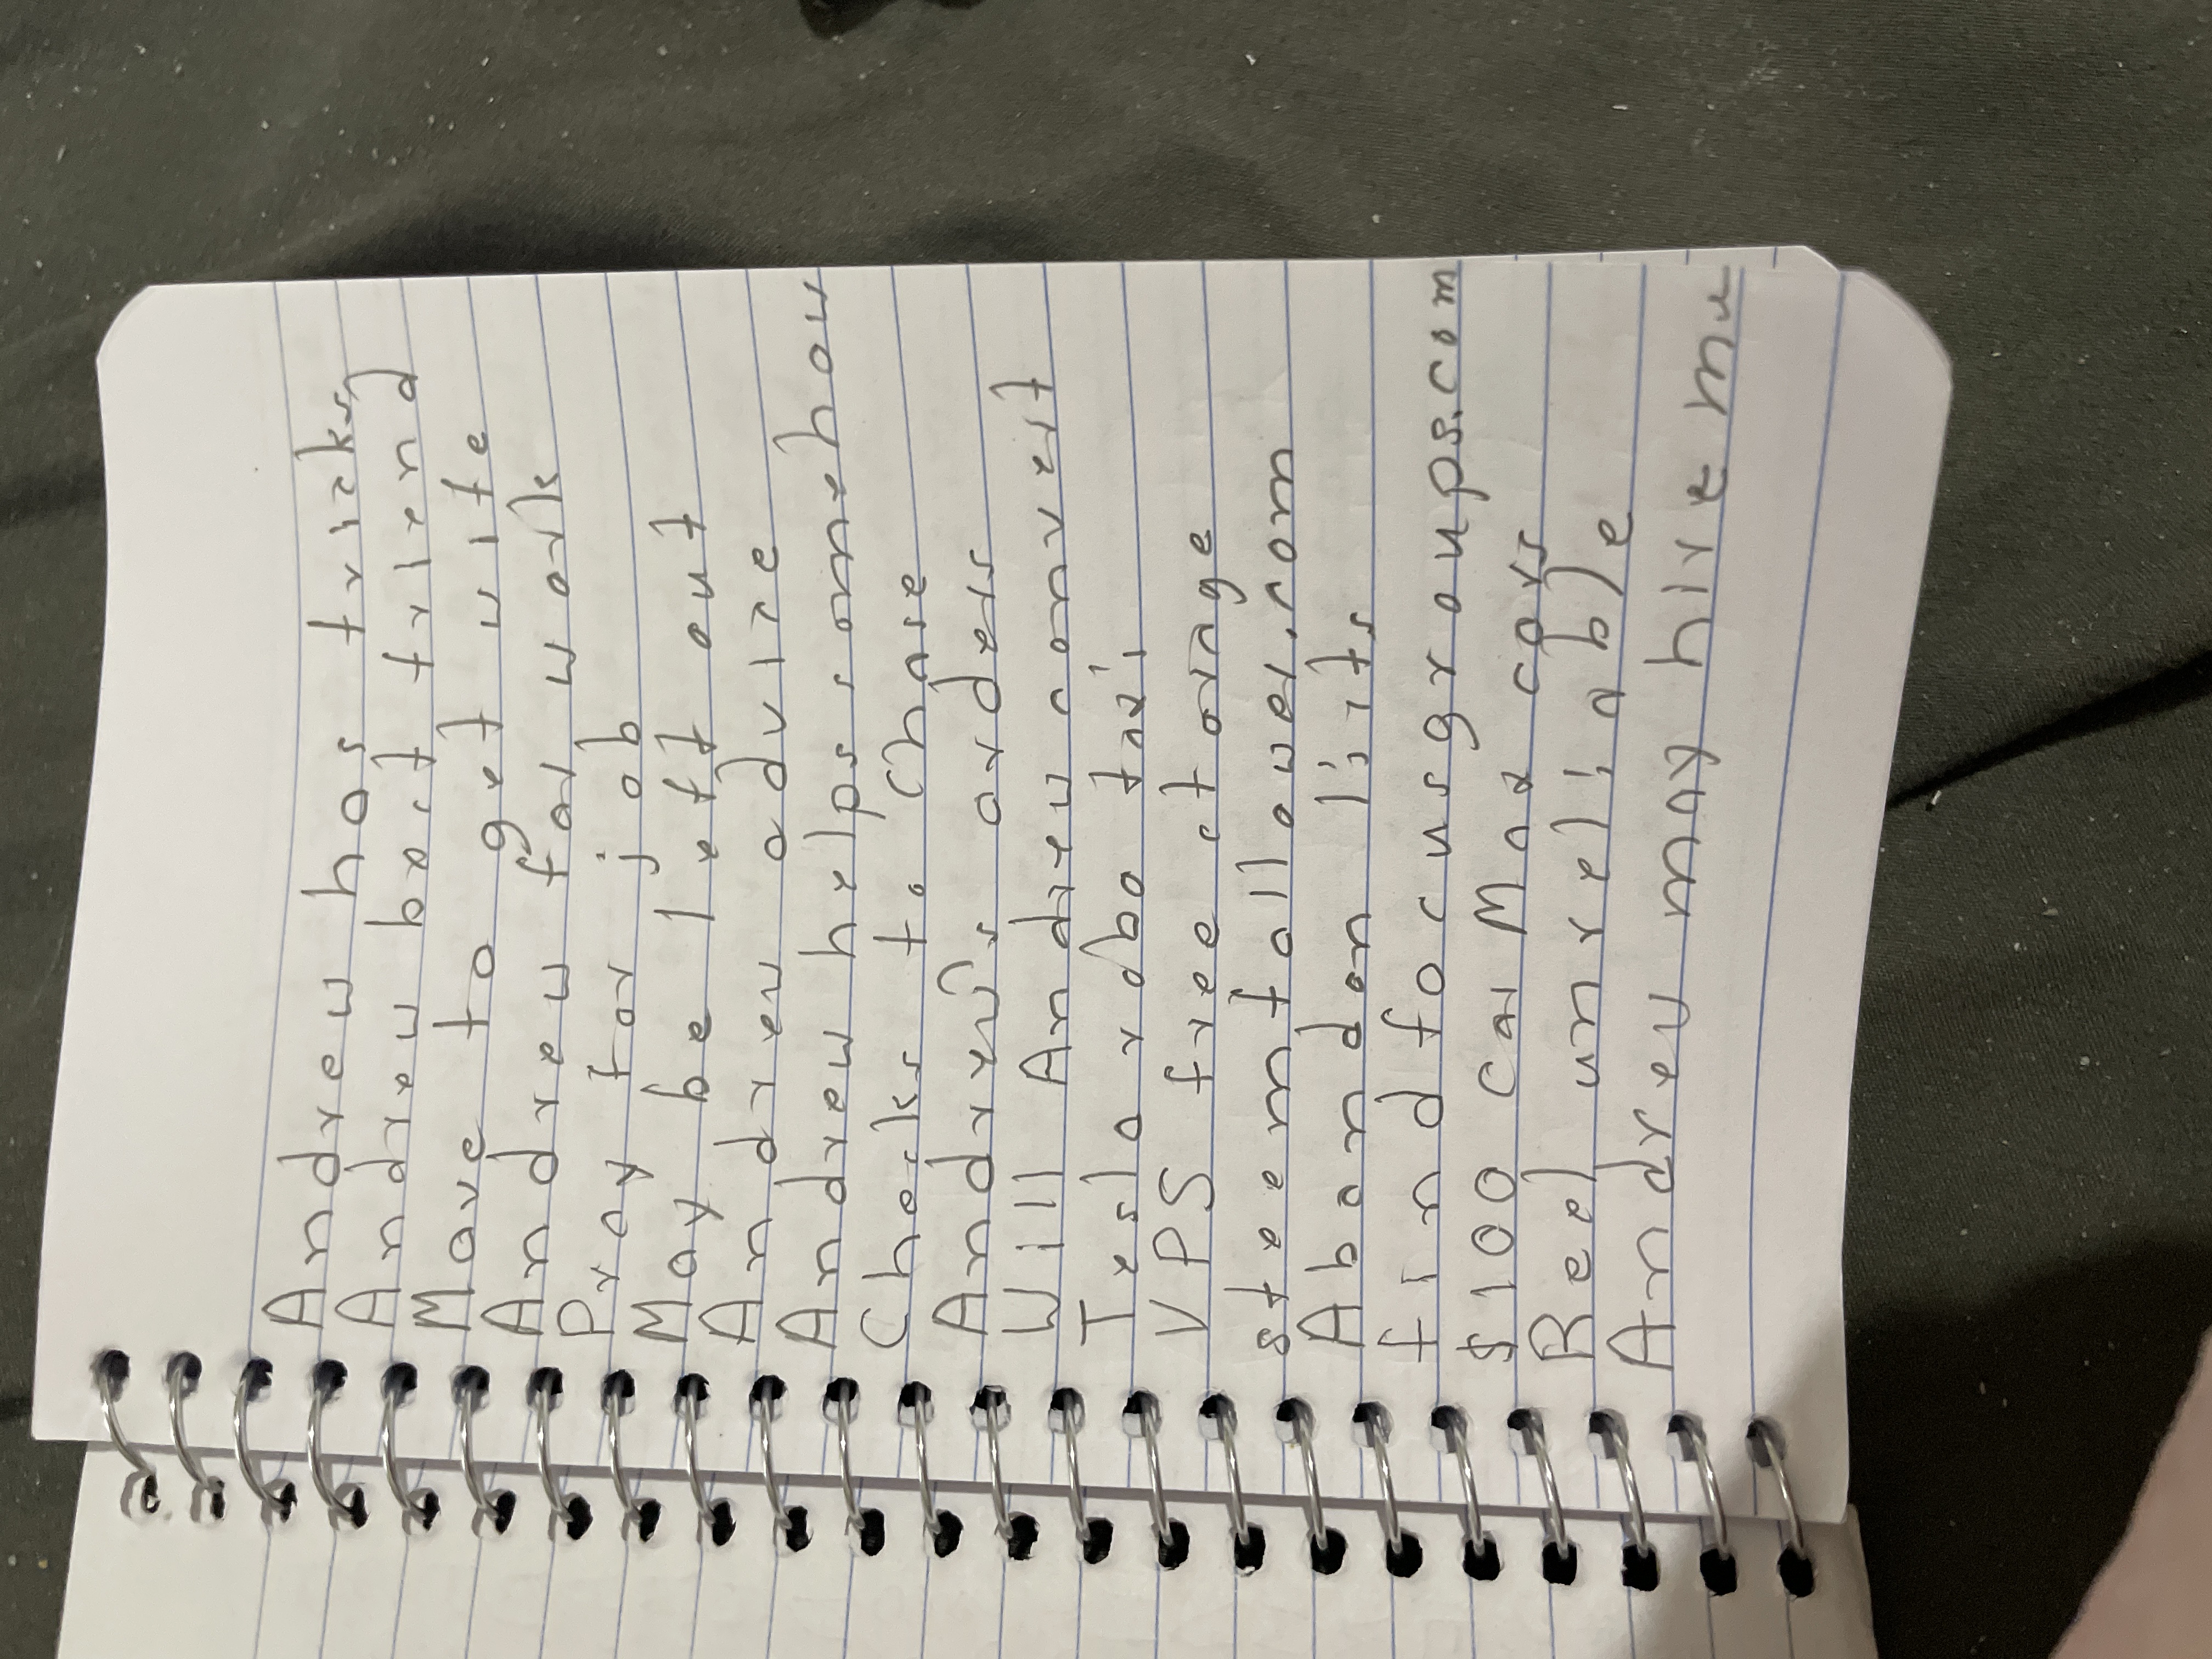 Andrew has tricks
Andrew best friend
Move to get wife
Andrew fav work
Pray for job
May be left out
Andrew advice
Andrew helps somehow
Checks to Chase
Andrew's orders
Will Andrew convert
Tesla robo taxi
VPS free storage
steemfollower.com
Abandon lists
find focusgroups.com
$100 car Max cavs
Beel unreliable
Andrew may hire me